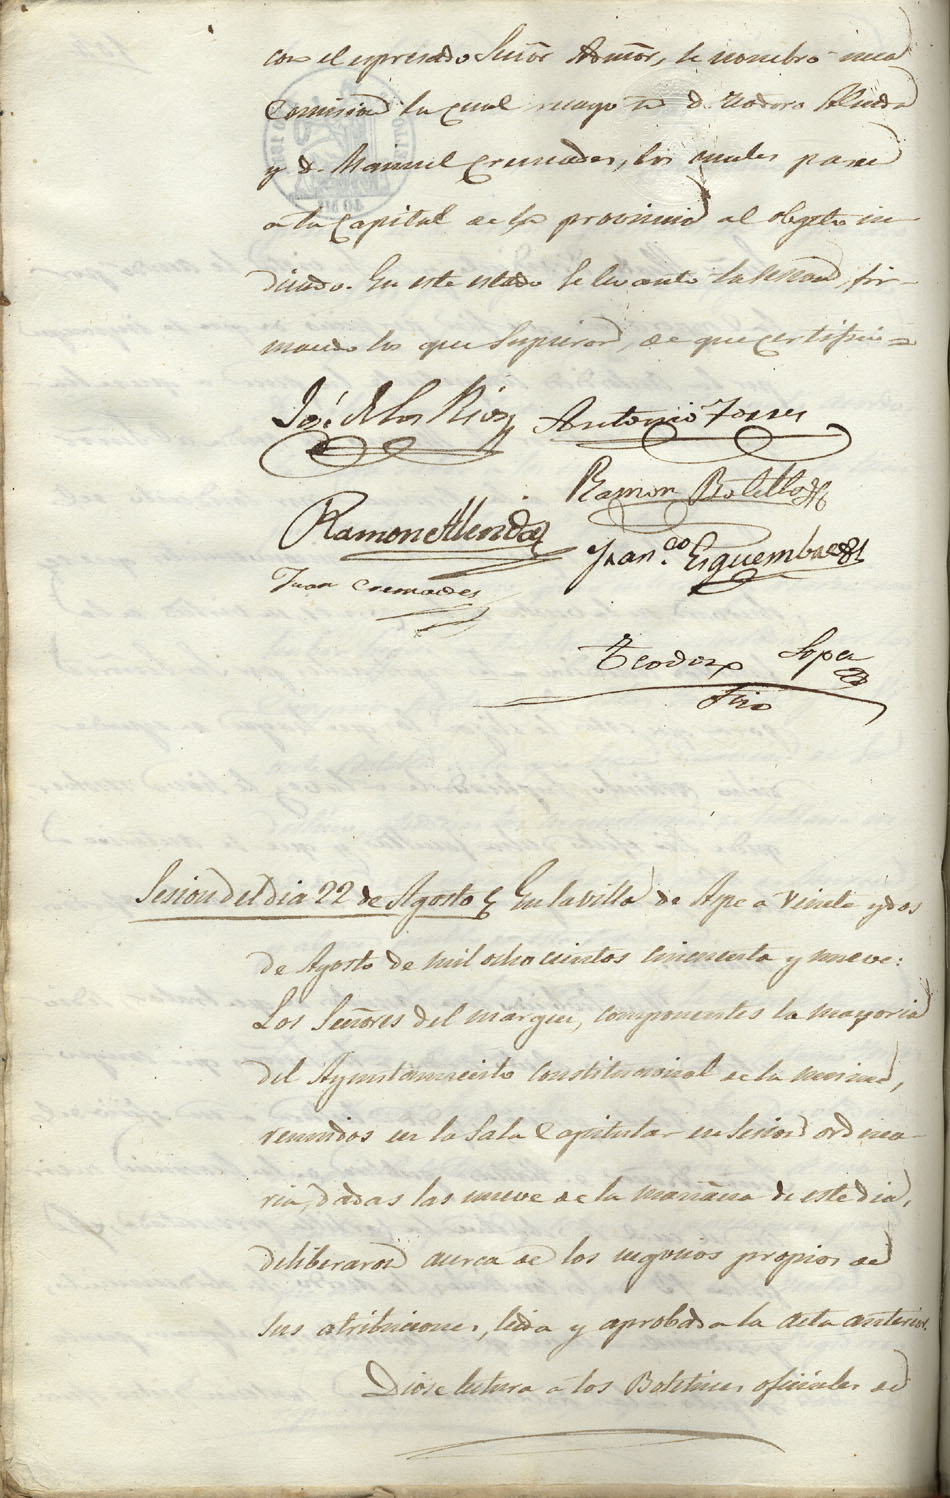 con el espresado Señor Admõr, se nombró una
Comision la cual recayó en D. Teodoro Alenda
y D. Manuel Cremades, los cuales pasen
a la Capital de la provincia al objeto in-
dicado. En este estado se levantó la sesion, fir-
mando los que supieron, de que certifico =
José de los Rios Antonio Torres
Ramon Botella
Ramon Alenda Fran.co Esquembre
Juan Cremades
Teodoro Lopez
Srio
Sesion del dia 22 de Agosto En la villa de Aspe a veinte y dos
de Agosto de mil ochocientos cincuenta y nueve:
Los Señores del margen, componentes la mayoria
del Ayuntamiento Constitucional de la misma,
reunidos en la Sala Capitular en sesion ordina-
ria, dadas las nueve de la mañana de este dia,
deliberaron acerca de los negocios propios de
sus atribuciones, leida y aprobada la acta anterior.
Diose lectura a los Boletines oficiales de